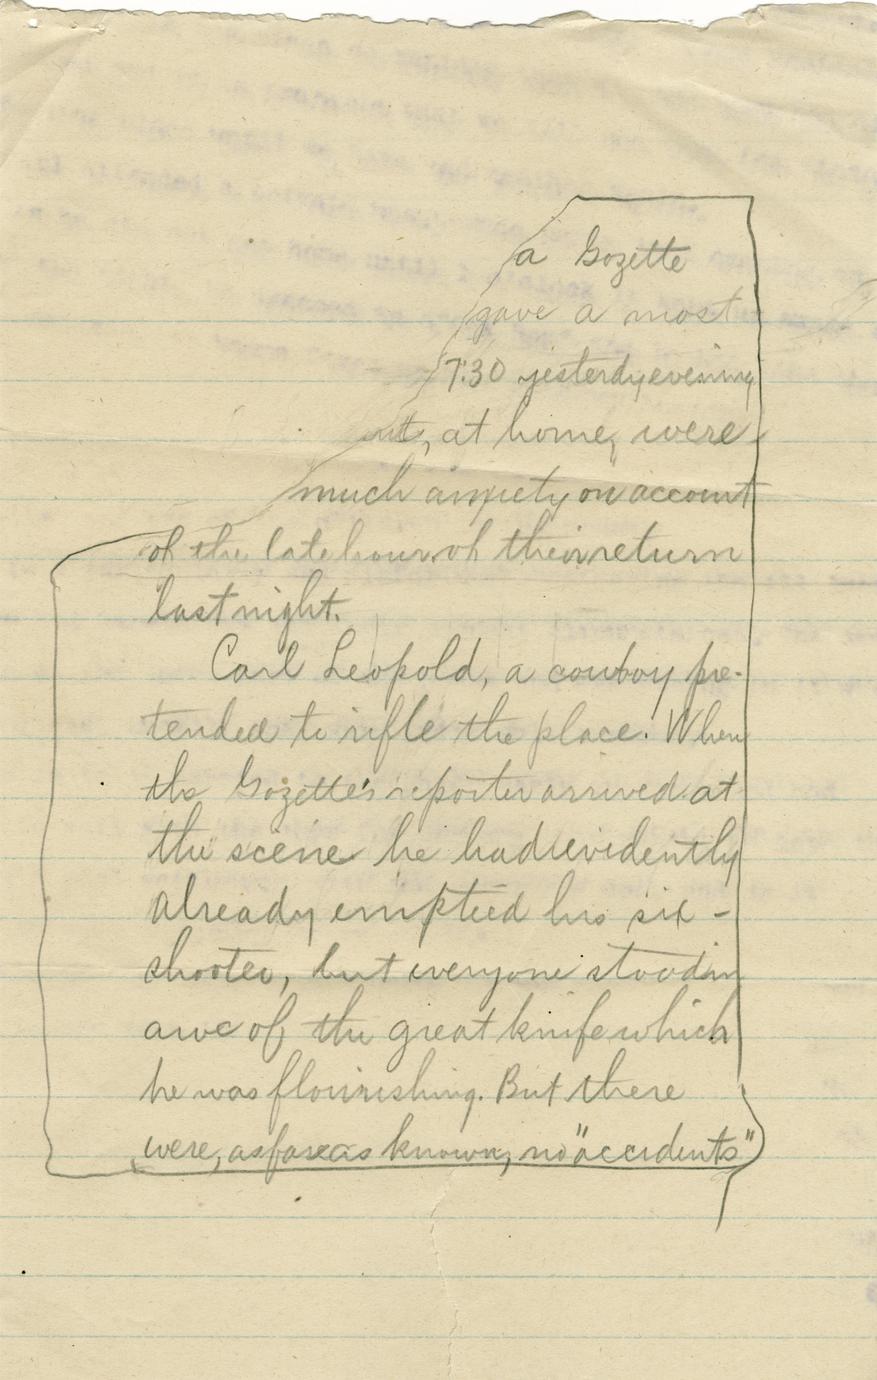 a Gozette
gave a most
7:30 yesterdy evening
at, at home, were
much anxiety on account
of the late hour of their return
last night.
Carl Leopold, a cowboy pre-
tended to rifle the place. When
the Gozette's reporter arrived at
the scene he had evidently
already emptied his six-
shooter, but everyone stood in
awe of the great knife which
he was flourishing. But there
were, as far as known, no "accidents"